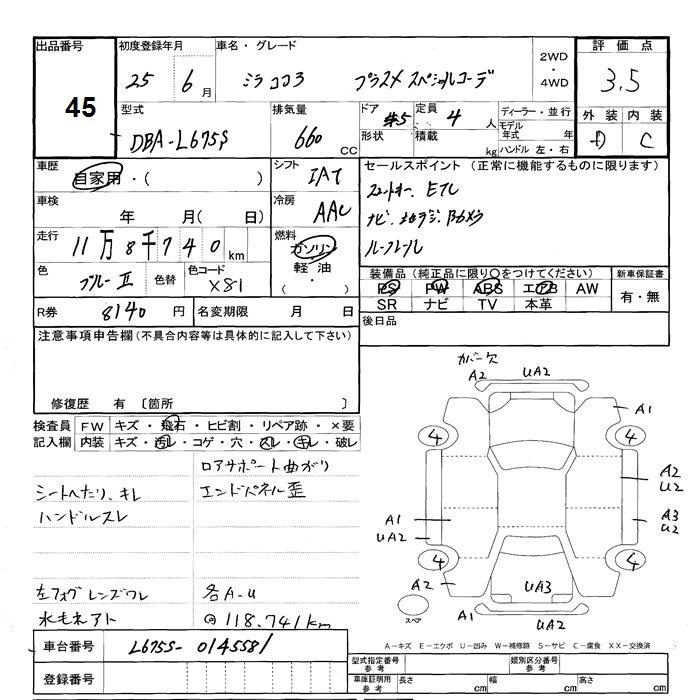 出品番号
45
初度登録年月
25 6月
車名・グレード
ミラココア プラスX スペシャルコーデ
2WD
・
4WD
評価点
3.5
型式
DBA-L675S
排気量
660 CC
ドア
形状
#5
定員 4 人
積載 kg
ディーラー・並行
モデル年式 年
ハンドル 左・右
外装 内装
D C
車歴
自家用・( )
シフト
IAT
セールスポイント (正常に機能するものに限ります)
スマートキー、ETC
ナビ、地デジ、Bカメラ
ルーフレール
車検
年 月( 日)
冷房
AAC
走行
11万8千740km
燃料
ガソリン
軽油
・( )
色
ブルーII
色替
色コード
X81
装備品 (純正品に限り○をつけてください)
PS PW ABS エアB AW
SR ナビ TV 本革
新車保証書
有・無
R券 8140 円
名変期限 月 日
後日品
注意事項申告欄(不具合内容等は具体的に記入して下さい)
修復歴 有 〔箇所 〕
検査員記入欄
FW キズ・飛石・ヒビ割・リペア跡・×要
内装 キズ・汚レ・コゲ・穴・スレ・キレ・破レ
ロアサポート曲がり
シートへたり、キレ エンドパネル歪
ハンドルスレ
左フォグレンズワレ 各A-U
水モネアト @118.741km
カバー欠
A2 UA2
A1
4 4
A2
U2
A1 A3
UA2 U2
4 4
A2 UA3
スペア
A1 UA2
A-キズ E-エクボ U-凹み W-補修跡 S-サビ C-腐食 XX-交換済
車台番号 L675S-0145581
登録番号
型式指定番号
参考
類別区分番号
参考
車庫証明用
参考
長さ cm 幅 cm 高さ cm